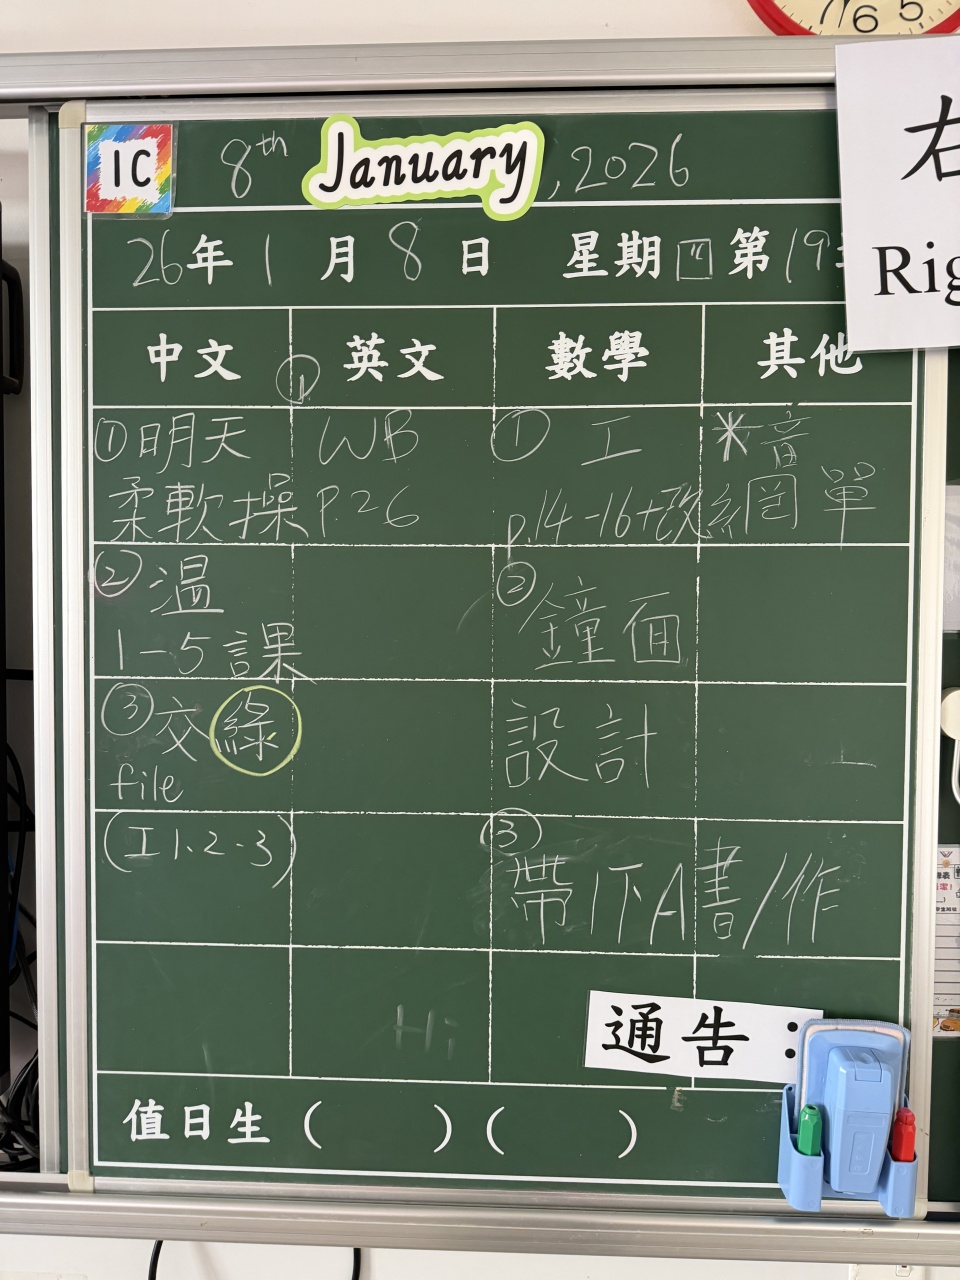 7 6 5
右
Rig
1C
8th January, 2026
26年1月8日 星期四 第19
中文 英文 數學 其他
①
①明天
柔軟操
②溫
1-5課
③交綠
file
(工1.2.3)
WB
P.26
Hi
①工
p.14-16+改
②鐘面
設計
③
帶1下A書/作
*音
網單
通告：
值日生 ( ) ( )